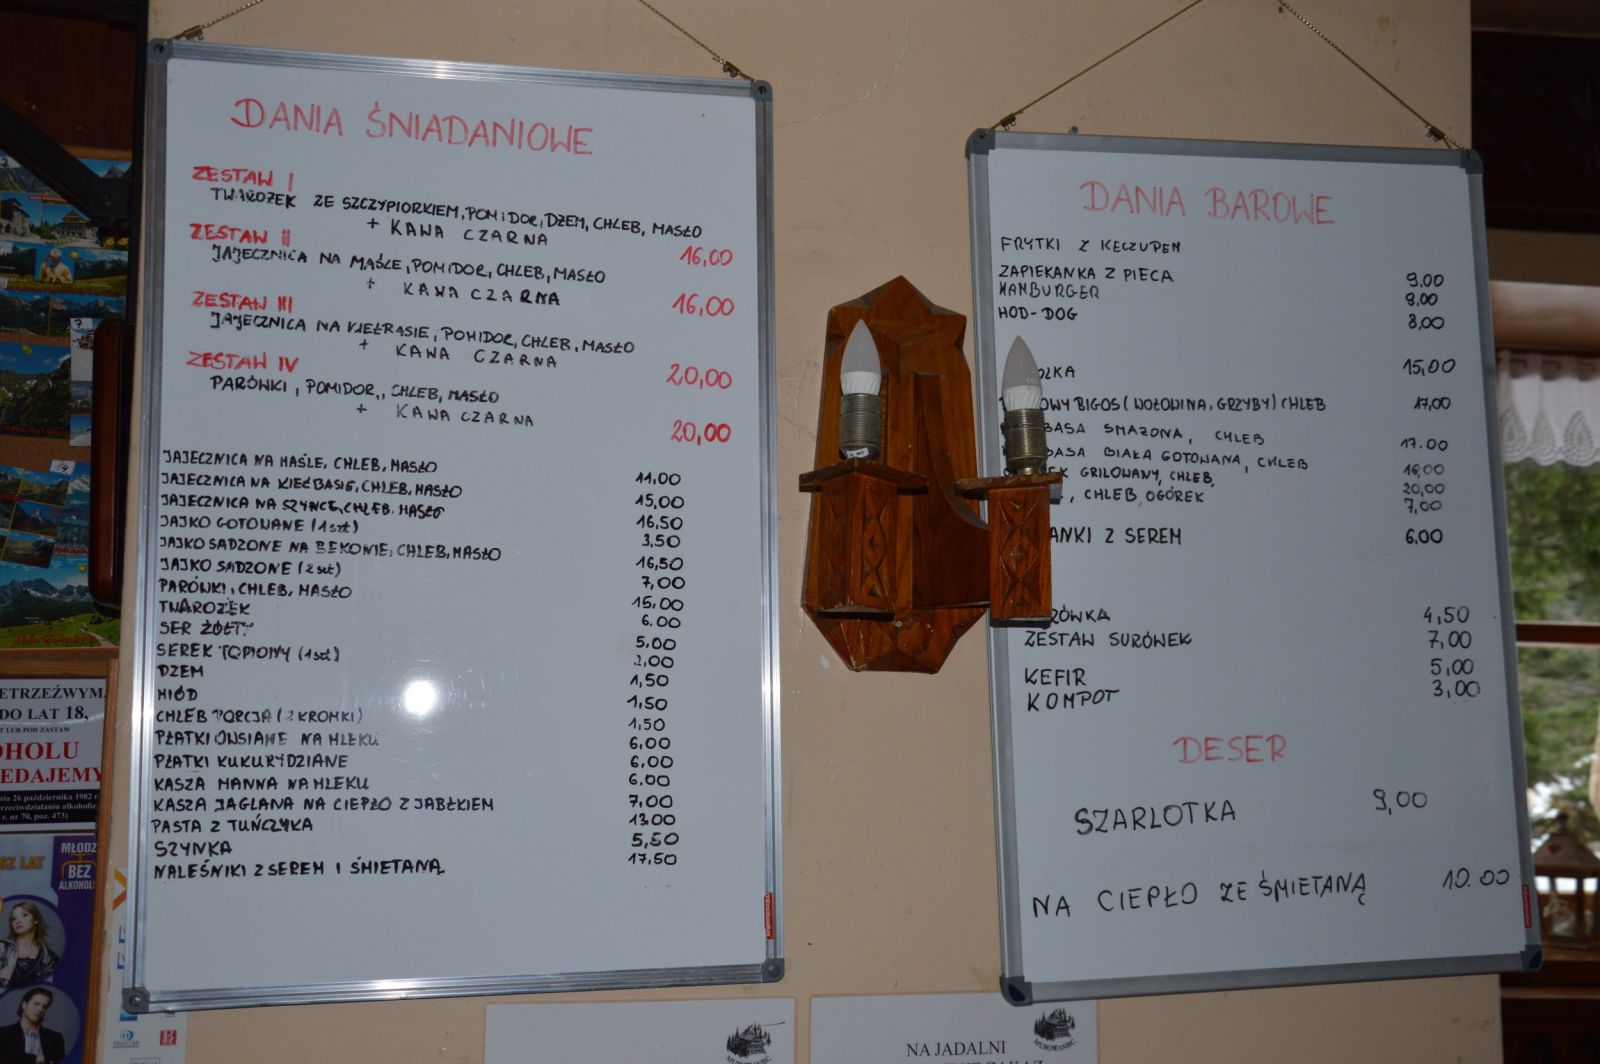 DANIA ŚNIADANIOWE
ZESTAW I
TWAROŻEK ZE SZCZYPIORKIEM, POMIDOR, DŻEM, CHLEB, MASŁO
+ KAWA CZARNA
16,00
ZESTAW II
JAJECZNICA NA MAŚLE, POMIDOR, CHLEB, MASŁO
+ KAWA CZARNA
16,00
ZESTAW III
JAJECZNICA NA KIEŁBASIE, POMIDOR, CHLEB, MASŁO
+ KAWA CZARNA
20,00
ZESTAW IV
PARÓWKI, POMIDOR,, CHLEB, MASŁO
+ KAWA CZARNA
20,00
JAJECZNICA NA MAŚLE, CHLEB, MASŁO 11,00
JAJECZNICA NA KIEŁBASIE, CHLEB, MASŁO 15,00
JAJECZNICA NA SZYNCE, CHLEB, MASŁO 16,50
JAJKO GOTOWANE (1szt) 3,50
JAJKO SADZONE NA BEKONIE, CHLEB, MASŁO 16,50
JAJKO SADZONE (2szt) 7,00
PARÓWKI, CHLEB, MASŁO 15,00
TWAROŻEK 6.00
SER ŻÓŁTY 5,00
SEREK TOPIONY (1szt) 2,00
DŻEM 1,50
MIÓD 1,50
CHLEB PORCJA (2 KROMKI) 1,50
PŁATKI OWSIANE NA MLEKU 6,00
PŁATKI KUKURYDZIANE 6,00
KASZA MANNA NA MLEKU 6.00
KASZA JAGLANA NA CIEPŁO Z JABŁKIEM 7,00
PASTA Z TUŃCZYKA 13,00
SZYNKA 5,50
NALEŚNIKI Z SEREM I ŚMIETANĄ 17,50
DANIA BAROWE
FRYTKI Z KECZUPEM
ZAPIEKANKA Z PIECA 9.00
HAMBURGER 9,00
HOD-DOG 8,00
15,00
OWY BIGOS (WOŁOWINA, GRZYBY) CHLEB 17,00
BASA SMAŻONA, CHLEB 17.00
BASA BIAŁA GOTOWANA, CHLEB 16,00
EK GRILOWANY, CHLEB, 20,00
, CHLEB, OGÓREK 7,00
ANKI Z SEREM 6,00
RÓWKA 4,50
ZESTAW SURÓWEK 7,00
KEFIR 5,00
KOMPOT 3,00
DESER
SZARLOTKA 9,00
NA CIEPŁO ZE ŚMIETANĄ 10.00
ETRZEŹWYM,
DO LAT 18,
T LUB POD ZASTAW
OHOLU
EDAJEMY
nia 26 października 1982 r.
rzeciwdziałaniu alkoholiz
r. nr 70, poz. 473)
SZ LAT
MŁODZ
BEZ
ALKOHOLU
MUROWANIEC
NA JADALNI
MUROWANIEC